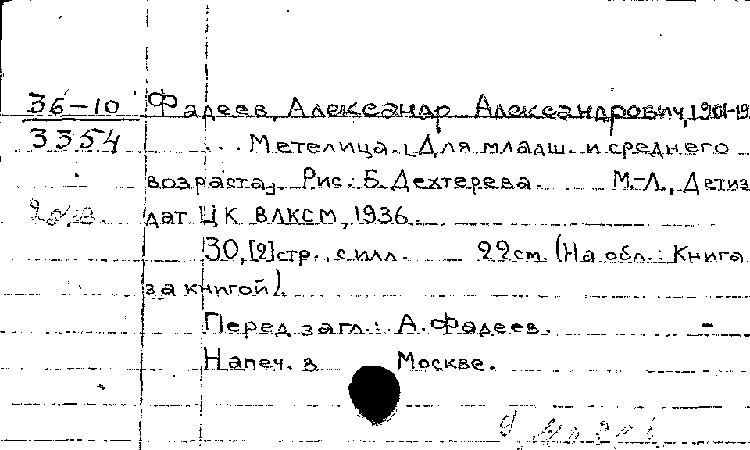 36-10 Фадеев, Александр Александрович, 1901-19
3354 ... Метелица. [Для младш. и среднего
возраста] Рис.: Б. Дехтерева. М.-Л., Детиз
дат ЦК ВЛКСМ, 1936.
30, [2] стр., с илл. 22 см. (На обл.: Книга
за книгой).
Перед загл.: А. Фадеев. -
Напеч. в Москве.